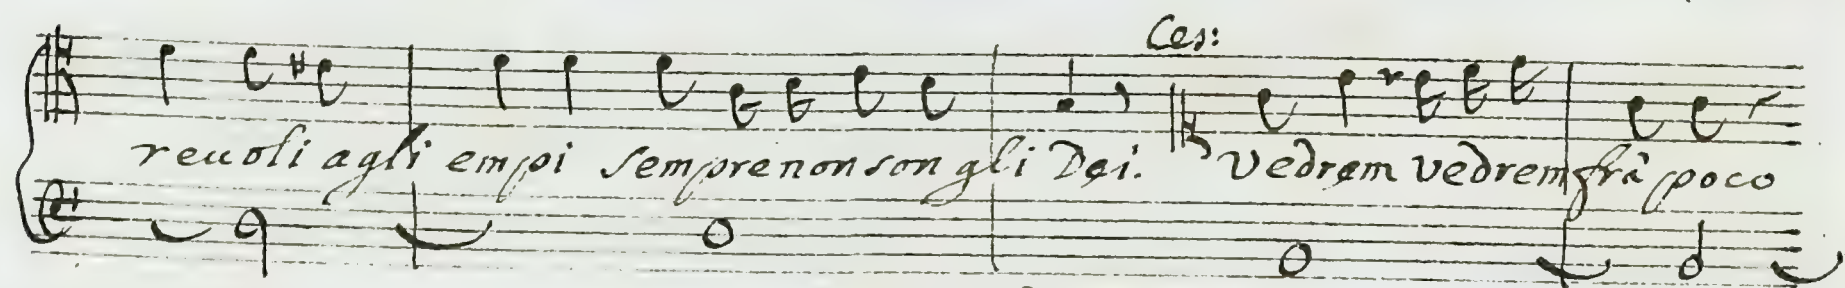 Ces:
reuoli agli empi sempre non son gli Dei. Vedrem vedrem frà poco